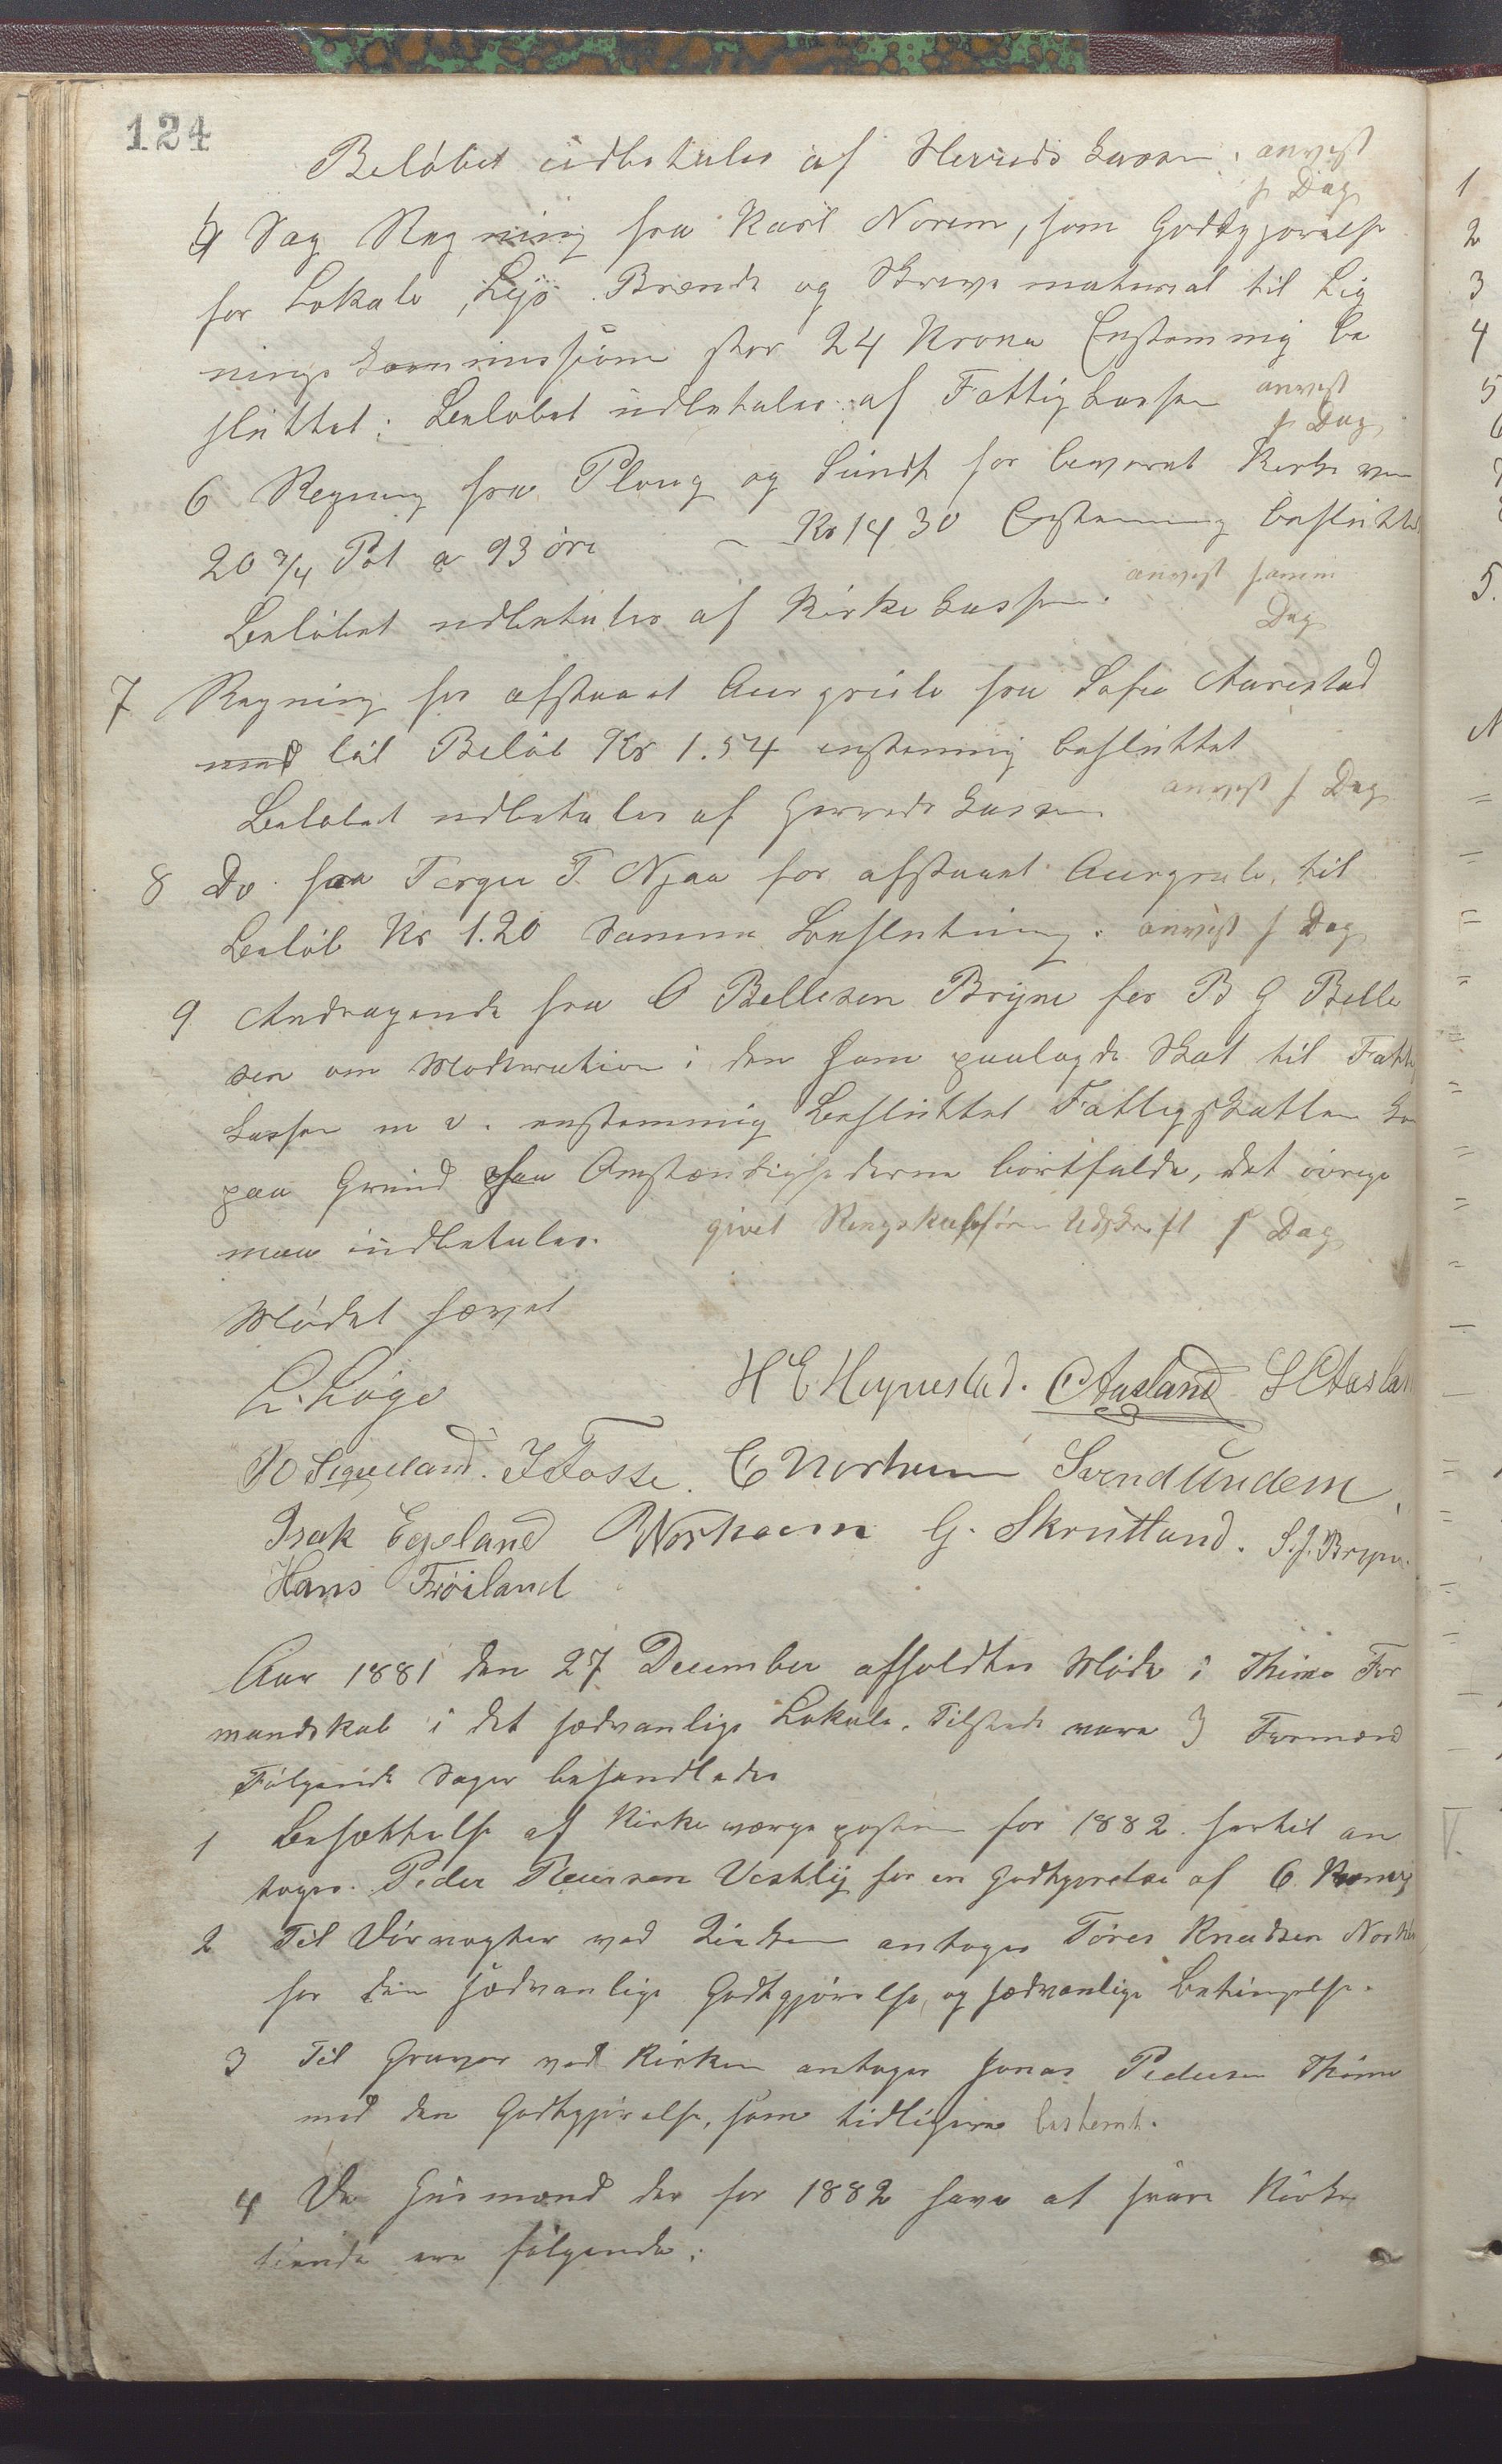 124
Beløbet udbetales af Herredskassen. anvist
s Dag
5 Sag Regning fra Karl Norem, som Godtgjørelse
for Lokale, Lys, Brende og Skrivematerial til Lig
ningskommissionen stor 24 Krone Enstemmig be
sluttet: Beløbet udbetales af Fattigkassen anvist
s Dag
6 Regning fra Ploug og Sundt for leveret Kirkevin
20 3/4 Pot a 93 øre ~ Kr 14 30 Enstemmig besluttet
Beløbet udbetales af Kirkekassen. anvist samme
Dag
7 Regning for afstaaet Aurgrule fra Sofie Aarestad
med til Beløb Kr 1.54 enstemmig besluttet
Beløbet udbetales af Herredskassen anvist s Dag
8 Do fra Torger T. Njaa for afstaaet Aurgrule, til
Beløb Kr 1.20 Samme Beslutning. anvist s Dag
9 Andragende fra O Bellesen Bryne for B G Belle
sen om Moderation i den ham paalagde Skat til Fattig
kassen m v. enstemmig besluttet Fattigskatten
paa Grund Omstændighederne bortfalde, det øvrige
maa indbetales. givet Rengskabsføren Udskrift s Dag
Mødet hævet
L. Løge H E Høgnestad. O Aasland S O Aaslan
P O Sigveland. J Fosse. E Norheim Svend Undem
Isak Egeland R Norheim G. Skrutland. S. J. Bryne.
Hans Frøiland
Aar 1881 den 27 December afholdtes Møde i Thime For
mandskab i det sædvanlige Lokale. Tilstede vare 3 Formænd
Følgende Sager behandledes
1 Besættelse af Kirkeværgeposten for 1882. hertil an
toges. Peder Reiersen Vestly for en Godtgjørelse af 6 Kroner
2 Til Dørvogter ved Kirken antoges Tøres Knudsen Norheim
for den sædvanlige Godtgjørelse, og sædvanlige Betingelse.
3 Til Graver ved Kirken antoges Jonas Pedersen Thime
med den Godtgjørelse, som tidligere bestemt.
4 De Husmænd der for 1882 have at svare Kirke
tiende ere følgende: